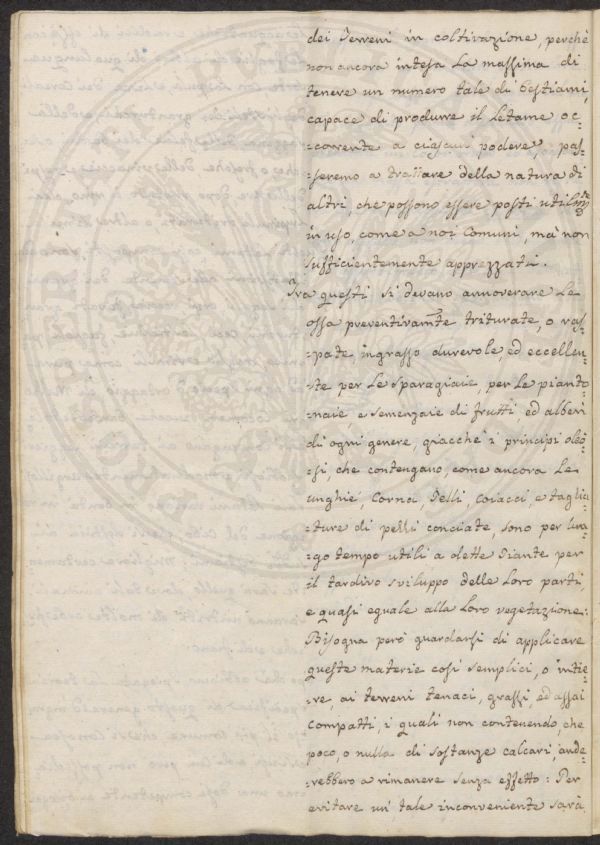 dei Terreni in coltivazione, perchè
non ancora intesa la massima di
tenere un numero tale di Bestiami,
capace di produrre il Letame oc=
=corrente a ciascun podere, pas=
=seremo a trattare della natura di
altri, che possono essere posti utilm.te
in uso, come a noi comuni, mà non
sufficientemente apprezzati.
Tra questi si devano annoverare le
ossa preventivam.te triturate, o ras=
=pate, ingrasso durevole, ed eccellen=
=te per le sparagiaie, per le pianto=
=naie e semenzaie di frutti ed alberi
di ogni genere, giacchè i principi oleo=
=si, che contengano, come ancora le
unghie, Corna, Pelli, Coiacci, e tagliu=
=ture di pelli conciate, sono per lun=
=go tempo utili a dette Piante per
il tardivo sviluppo delle loro parti,
e quasi eguale alla loro vegetazione:
Bisogna però guardarsi di applicare
queste materie così semplici, o intie=
=re, ai terreni tenaci, grassi, ed assai
compatti, i quali non contenendo, che
poco, o nulla di sostanze calcari, ande=
=rebbero a rimanere senza effetto: Per
evitare un tale inconveniente sarà